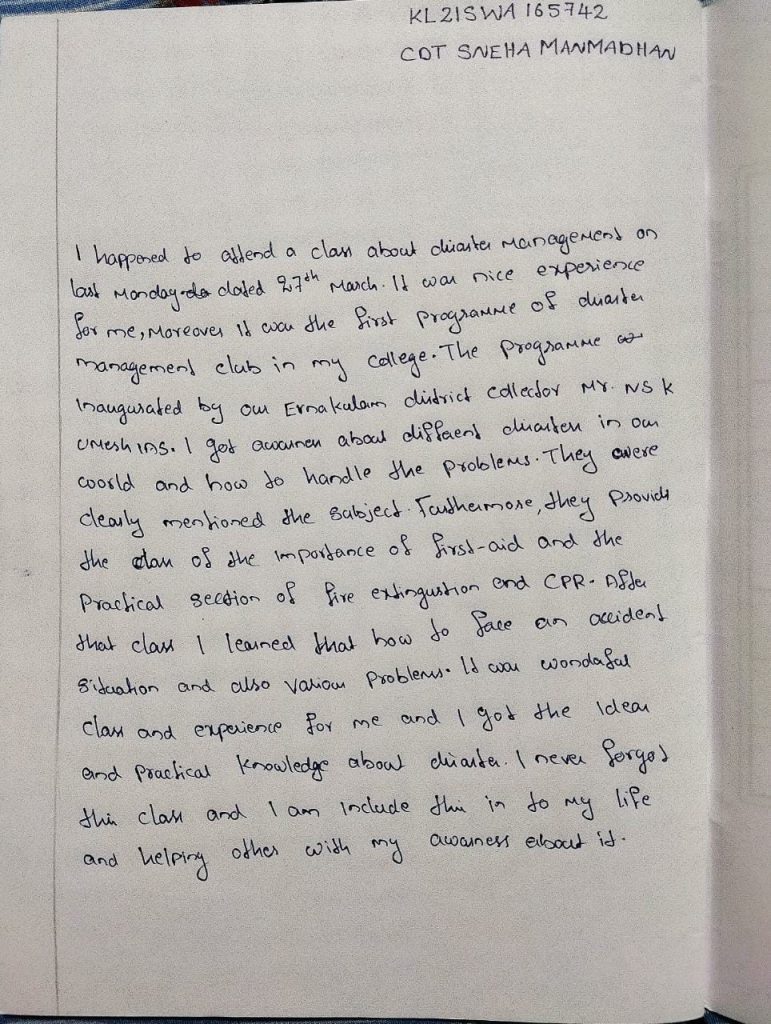 KL21SWA165742
CDT SNEHA MANMADHAN
I happened to attend a class about disaster management on
last Monday dated 27th March. It was nice experience
for me, Moreover it was the first programme of disaster
management club in my college. The programme
inaugurated by our Ernakulam district collector Mr. NSK
UMesh IAS. I got awarness about different disasters in our
world and how to handle the problems. They were
clearly mentioned the subject. Furthermore, they provide
the class of the importance of first-aid and the
Practical section of fire extingustion and CPR. After
that class I learned that how to face an accident
situation and also various problems. It was wondaful
class and experience for me and I got the Ideas
and practical knowledge about disaster. I never forgot
this class and I am include this in to my life
and helping other with my awarness about it.